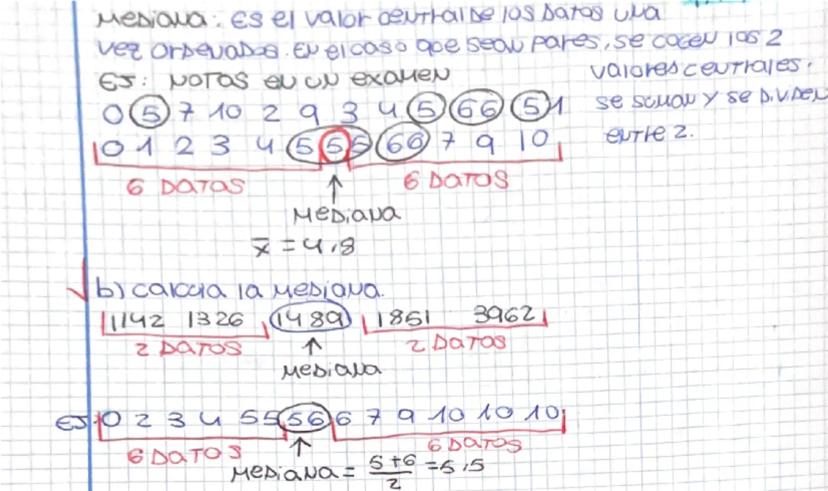 MEDIANA: ES EL VALOR CENTRAL DE LOS DATOS UNA
VEZ ORDENADOS. EN EL CASO QUE SEAN PARES, SE COGEN LOS 2
VALORES CENTRALES.
SE SUMAN Y SE DIVIDEN
ENTRE 2.
EJ: NOTAS EN UN EXAMEN
0 5 7 10 2 9 3 4 5 66 5 1
0 1 2 3 4 5 5 5 66 7 9 10
6 DATOS 6 DATOS
MEDIANA
x̄ = 4,8
b) CALCULA LA MEDIANA.
1142 1326 1489 1851 3962
2 DATOS 2 DATOS
MEDIANA
EJ: 0 2 3 4 5 5 5 6 6 7 9 10 10 10
6 DATOS 6 DATOS
MEDIANA = 5+6/2 = 5,5